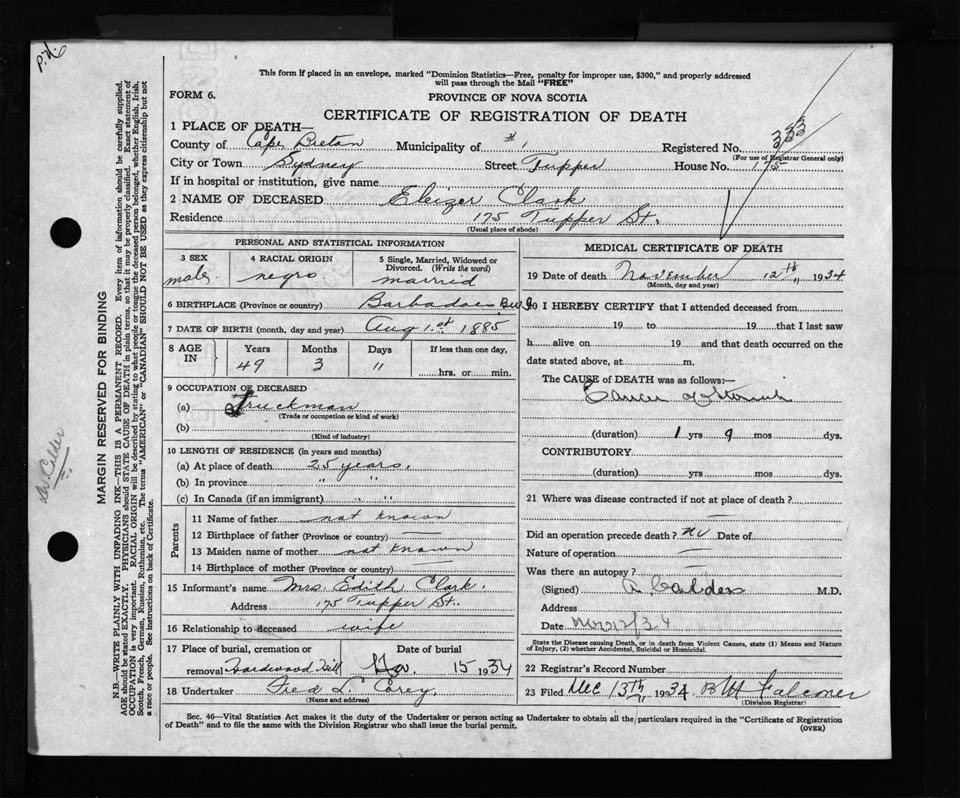 P.H.
This form if placed in an envelope, marked "Dominion Statistics—Free, penalty for improper use, $300," and properly addressed
will pass through the Mail "FREE"
FORM 6.
PROVINCE OF NOVA SCOTIA
CERTIFICATE OF REGISTRATION OF DEATH
1 PLACE OF DEATH—
County of Cape Breton Municipality of " Registered No. 333
(For use of Registrar General only)
City or Town Sydney Street Tupper House No. 175
If in hospital or institution, give name
2 NAME OF DECEASED Eleizer Clark
Residence 175 Tupper St.
(Usual place of abode)
PERSONAL AND STATISTICAL INFORMATION
3 SEX 4 RACIAL ORIGIN 5 Single, Married, Widowed or Divorced. (Write the word)
male negro married
6 BIRTHPLACE (Province or country) Barbadoes B.W.I.
7 DATE OF BIRTH (month, day and year) Aug 1st 1885
8 AGE IN Years Months Days If less than one day,
49 3 11 hrs. or min.
9 OCCUPATION OF DECEASED
(a) Truckman
(Trade or occupation or kind of work)
(b)
(Kind of industry)
10 LENGTH OF RESIDENCE (in years and months)
(a) At place of death 25 years.
(b) In province " "
(c) In Canada (if an immigrant) " "
Parents
11 Name of father not known
12 Birthplace of father (Province or country) —
13 Maiden name of mother not known
14 Birthplace of mother (Province or country) —
15 Informant's name Mrs. Edith Clark.
Address 175 Tupper St.
16 Relationship to deceased wife
17 Place of burial, cremation or Date of burial
removal Hardwood Hill Nov. 15 1934
18 Undertaker Fred L. Corey.
(Name and address)
MEDICAL CERTIFICATE OF DEATH
19 Date of death November 12th, 1934
(Month, day and year)
20 I HEREBY CERTIFY that I attended deceased from
19 to 19 that I last saw
h alive on 19 and that death occurred on the
date stated above, at m.
The CAUSE of DEATH was as follows:—
Cancer of Stomach
(duration) 1 yrs 9 mos dys.
CONTRIBUTORY
(duration) yrs mos dys.
21 Where was disease contracted if not at place of death?
—
Did an operation precede death? no Date of
Nature of operation —
Was there an autopsy? —
(Signed) A. Calder M.D.
Address
Date Nov 12/34
State the Disease causing Death, or in death from Violent Causes, state (1) Means and Nature of Injury, (2) whether Accidental, Suicidal or Homicidal.
22 Registrar's Record Number
23 Filed Dec 13th 1934 B M Falconer
(Division Registrar)
Sec. 46—Vital Statistics Act makes it the duty of the Undertaker or person acting as Undertaker to obtain all the particulars required in the "Certificate of Registration
of Death" and to file the same with the Division Registrar who shall issue the burial permit.
(OVER)
MARGIN RESERVED FOR BINDING
N.B.—WRITE PLAINLY WITH UNFADING INK—THIS IS A PERMANENT RECORD. Every item of information should be carefully supplied.
AGE should be stated EXACTLY. PHYSICIANS should STATE CAUSE OF DEATH in plain terms, so that it may be properly classified. Exact statement of
OCCUPATION is very important. RACIAL ORIGIN will be described by stating to what people or tongue the deceased person belonged, whether English, Irish,
Scotch, French, German, Russian, Ruthenian, etc. The terms "AMERICAN" or "CANADIAN" SHOULD NOT BE USED as they express citizenship but not
a race or people. See instructions on back of Certificate.
Calder